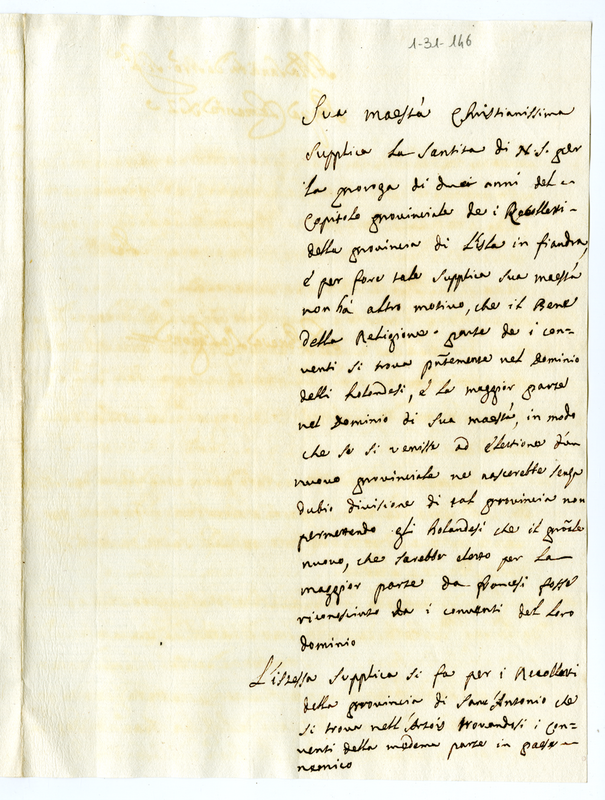 1-31-146
Sua maestà Christianissima
supplica La Santita di N. S. per
La proroga di duoi anni del
Capitolo provinciale de i Recolletti
della provincia di Lisla in fiandra,
é per fare tale supplica sua maestà
non hà altro motivo, che il Bene
della Religione. parte de i con=
venti si trova pñtemente nel Dominio
delli holandesi, é La maggior parte
nel Dominio di sua maestà, in modo
che se si venisse ad élettione d'un
nuovo provinciale ne nascerebbe senza
dubio divisione di tal provincia non
permettendo gli holandesi che il
nuovo, che sarebbe eletto per La
maggior parte da francesi fosse
riconosciuto da i conventi del Loro
dominio
L'istessa supplica si fa per i Recolletti
della provincia di Sant'Antonio che
si trova nell'Artois trovandosi i con=
venti della medema parte in paese
nemico